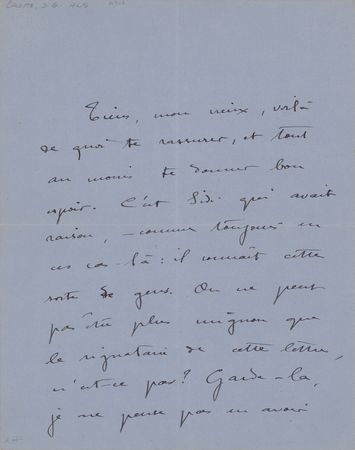 Tiens, mon vieux, voilà
de quoi te rassurer, et tout
au moins te donner bon
espoir. C'est Sidi qui avait
raison, – comme toujours en
ces cas-là : il connaît cette
sorte de gens. On ne peut
pas être plus mignon que
le signataire de cette lettre,
n'est-ce pas ? Garde-la,
je ne pense pas en avoir